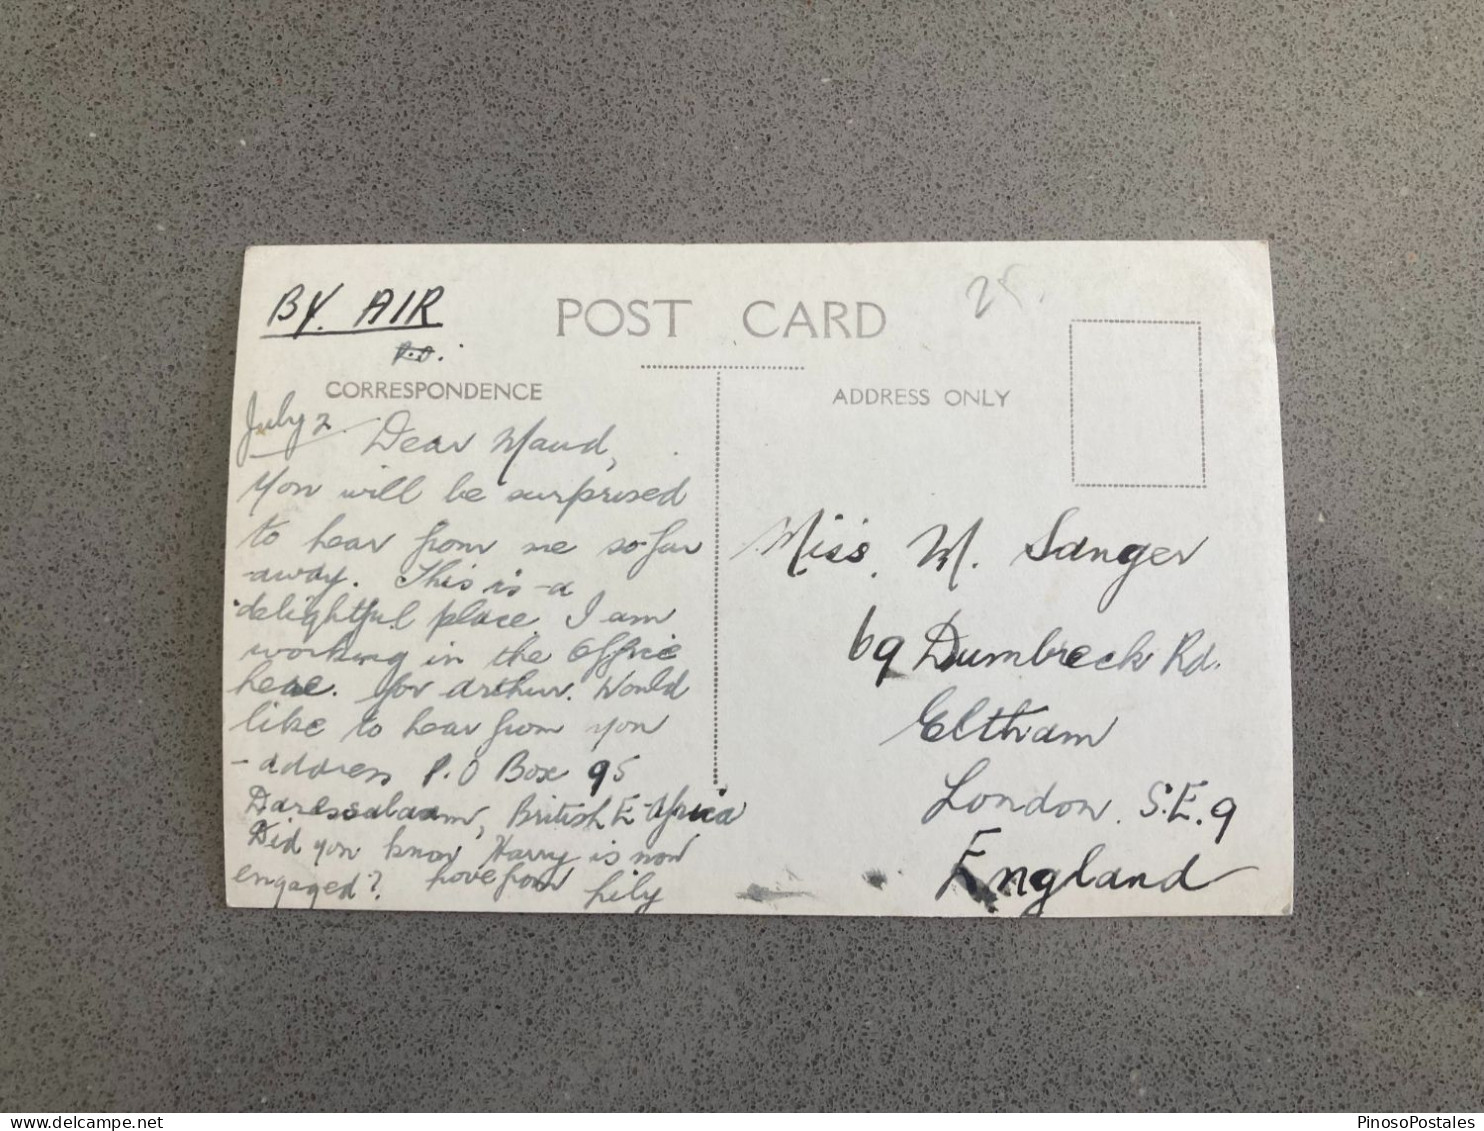 BY. AIR
P.O.
POST CARD
25.
CORRESPONDENCE
ADDRESS ONLY
July 2.
Dear Maud,
You will be surprised
to hear from me so far
away. This is a
delightful place. I am
working in the Office
here. for Arthur. Would
like to hear from you
- address P.O Box 95
Daressalaam, British E-Africa
Did you know Harry is now
engaged? Love from Lily
Miss. M. Sanger
69 Dumbreck Rd.
Eltham
London. S.E.9
England
PinosoPostales